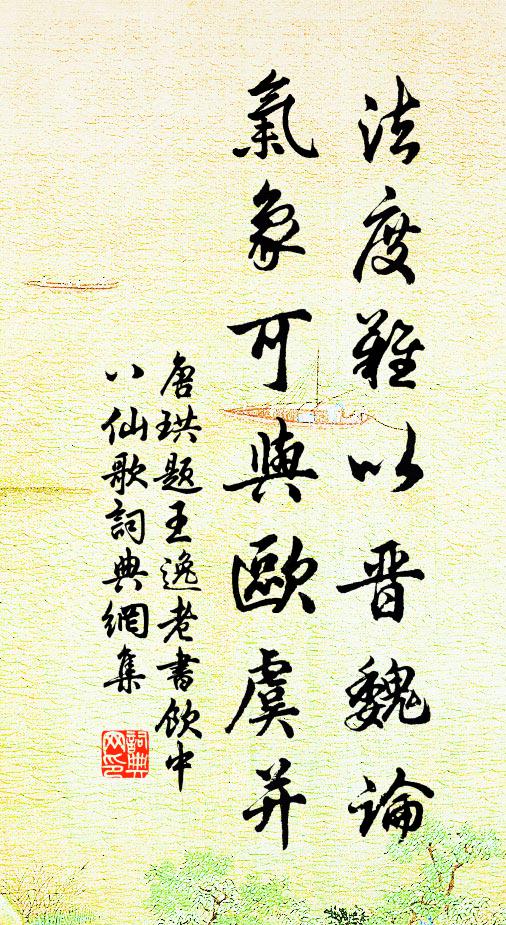 法度難以晋魏論
氣象可與歐虞并
唐珙題王逸老書飲中
八仙歌詞典網集
詞典網印